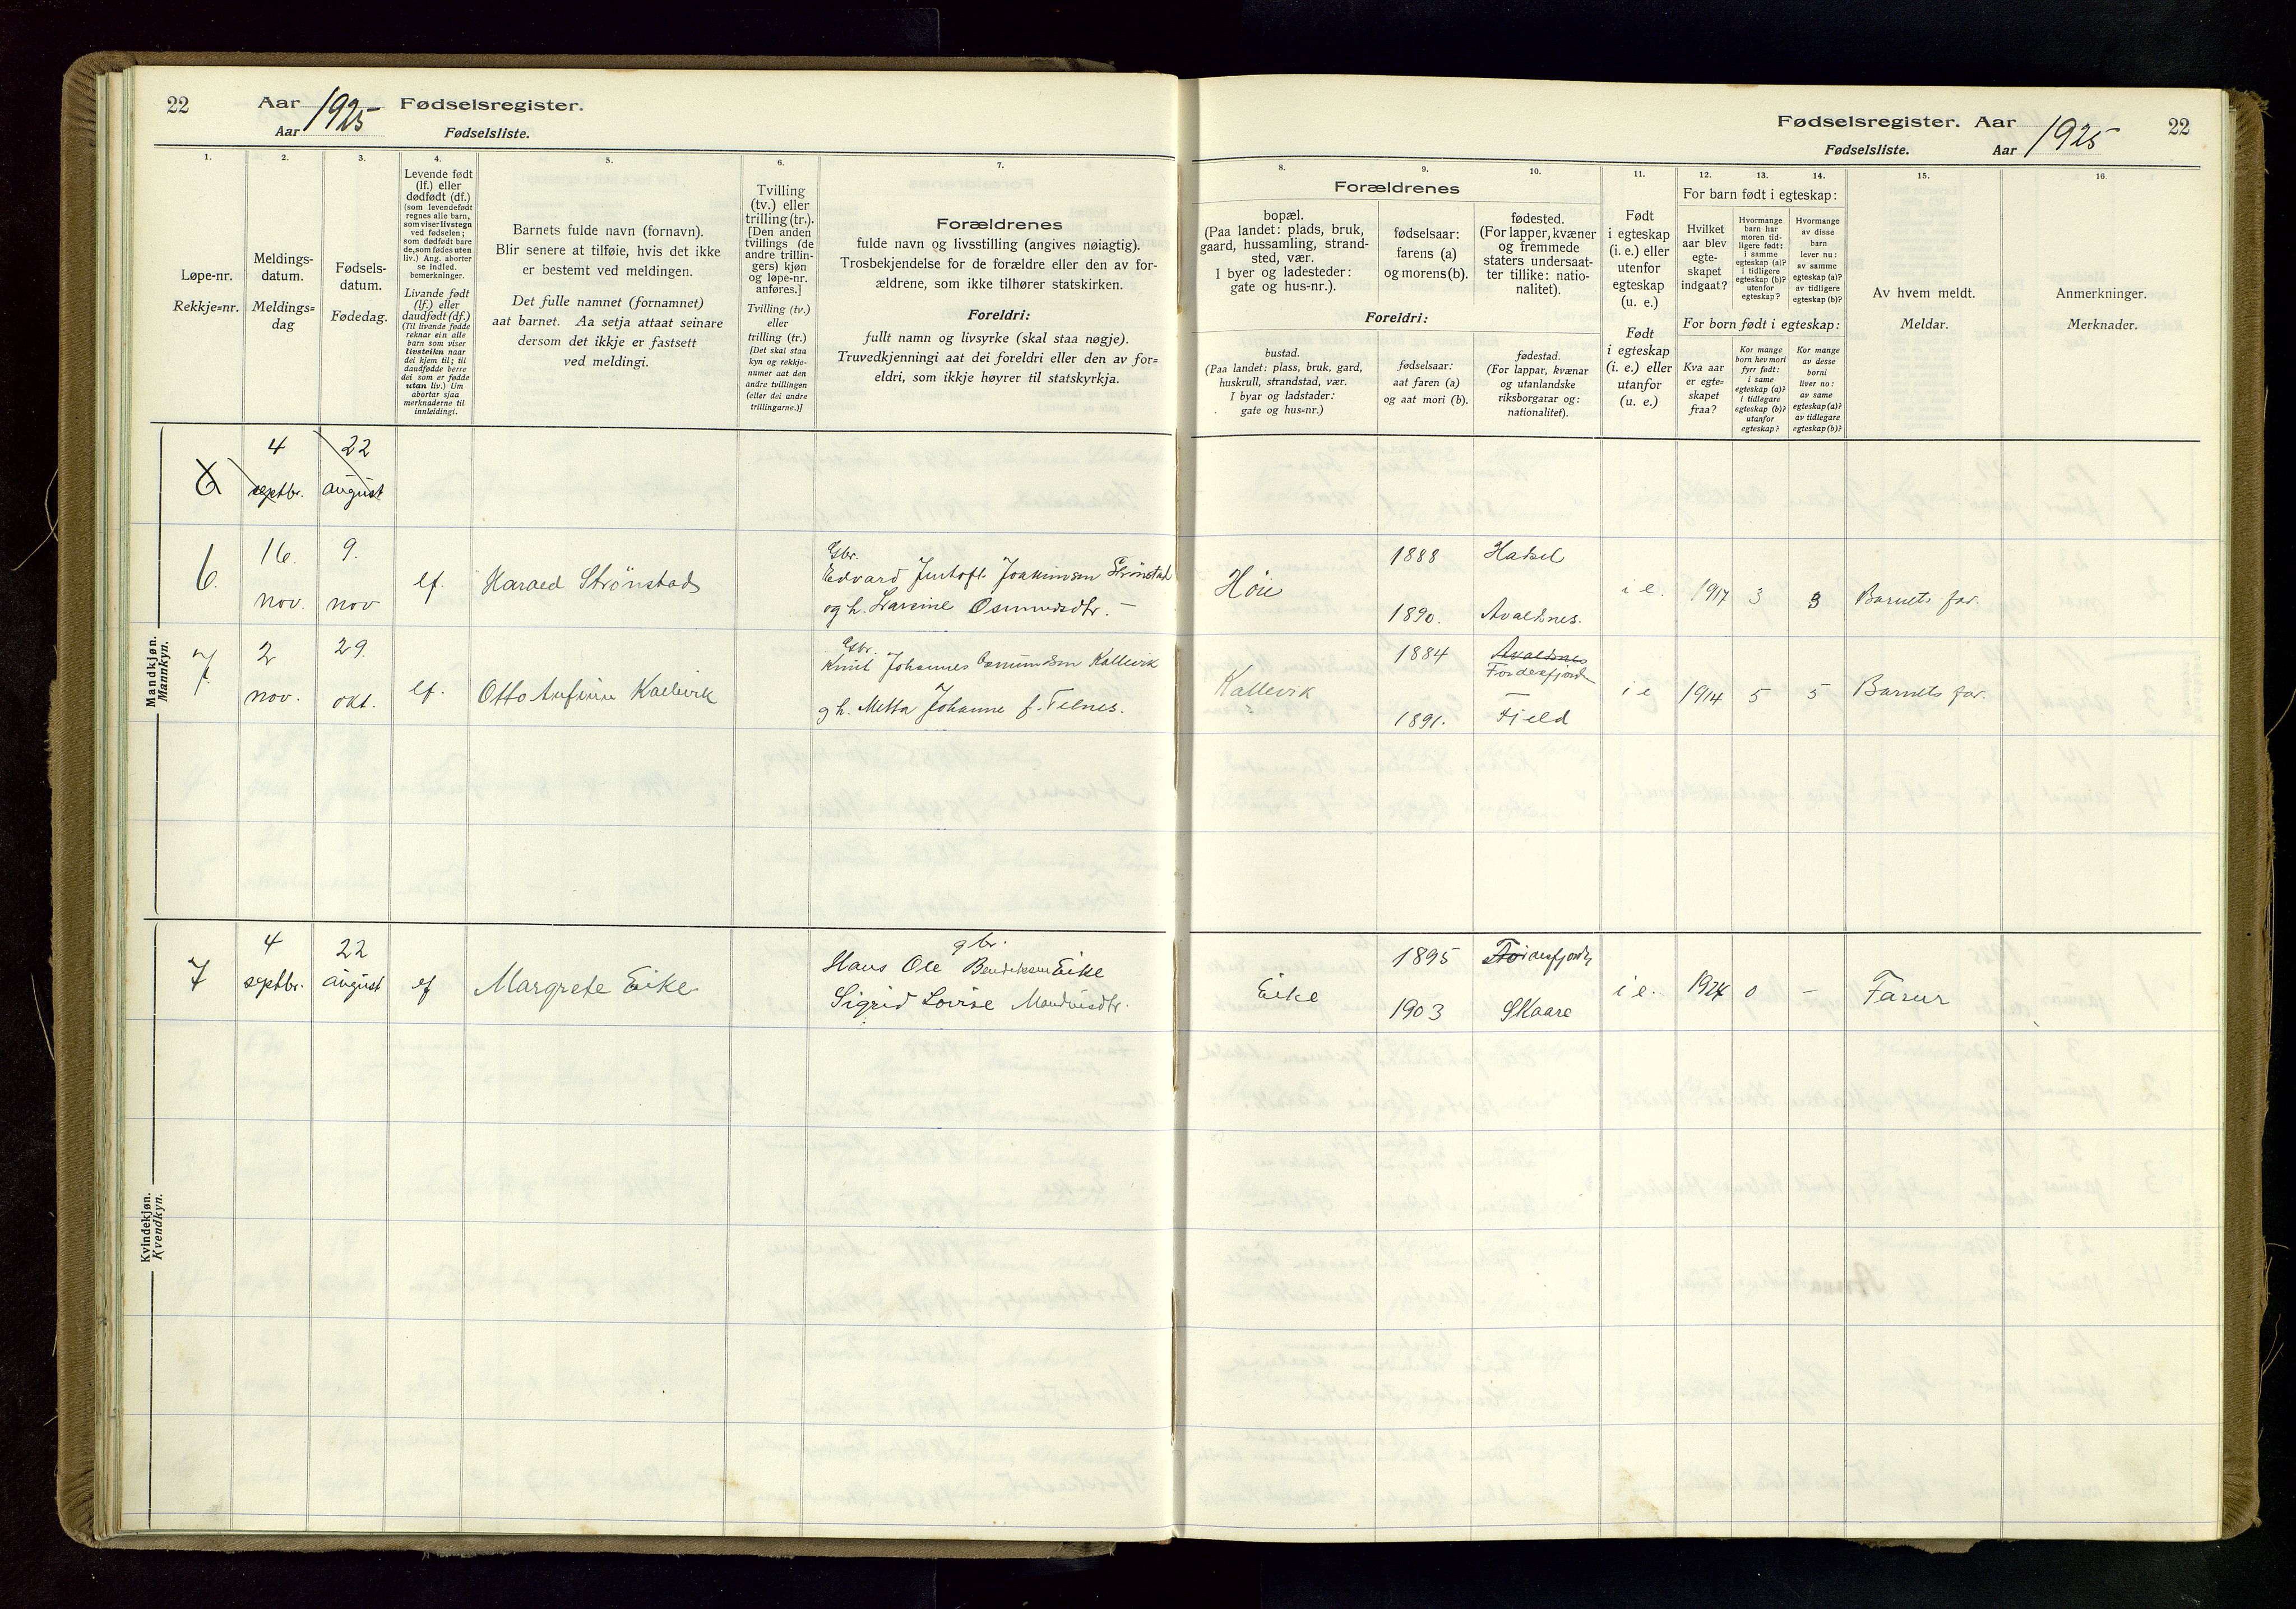 22
Aar 1925 Fødselsregister.
Aar Fødselsliste.
1. 2. 3. 4. 5. 6. 7.
Løpe-nr.
Rekkje=nr.
Meldings-
datum.
Meldings=
dag
Fødsels-
datum.
Fødedag.
Levende født
(lf.) eller
dødfødt (df.)
(som levendefødt
regnes alle barn,
som viser livstegn
ved fødselen;
som dødfødt bare
de, som fødes uten
liv.) Ang. aborter
se indled.
bemerkninger.
Livande født
(lf.) eller
daudfødt (df.)
(Til livande fødde
reknar ein alle
barn som viser
livsteikn naar
dei kjem til; til
daudfødde berre
dei som er fødde
utan liv.) Um
abortar sjaa
merknaderne til
innleidingi.
Barnets fulde navn (fornavn).
Blir senere at tilføie, hvis det ikke
er bestemt ved meldingen.
Det fulle namnet (fornamnet)
aat barnet. Aa setja attaat seinare
dersom det ikkje er fastsett
ved meldingi.
Tvilling
(tv.) eller
trilling (tr.).
[Den anden
tvillings (de
andre trillin-
gers) kjøn
og løpe-nr.
anføres.]
Tvilling (tv.)
eller
trilling (tr.)
[Det skal staa
kyn og rekkje-
numer aat den
andre tvillingen
(eller dei andre
trillingarne.)]
Forældrenes
fulde navn og livsstilling (angives nøiagtig).
Trosbekjendelse for de forældre eller den av for-
ældrene, som ikke tilhører statskirken.
Foreldri:
fullt namn og livsyrke (skal staa nøgje).
Truvedkjenningi aat dei foreldri eller den av for=
eldri, som ikkje høyrer til statskyrkja.
Mandkjøn.
Mannkyn.
6 4 septbr. 22 august
6. 16. nov. 9. nov lf. Harald Strönstad
Gbr.
Edvard Justoft Joakimsen Strönstad
og h. Lavine Osmundsdtr. –
7. 2 nov. 29. okt. lf. Otto Anfinn Kallevik
Gbr.
Knut Johannes Osmundsen Kallevik
g h. Metta Johanne f. Telnes.
Kvindekjøn.
Kvendkyn.
7 4 septbr. 22 august lf Margrete Eike
gbr.
Hans Ole Bendiksen Eike
Sigrid Lovise Mandiusdtr.
Fødselsregister. Aar 1925 22
Fødselsliste. Aar
8. 9. 10. 11. 12. 13. 14. 15. 16.
Forældrenes
bopæl.
(Paa landet: plads, bruk,
gaard, hussamling, strand-
sted, vær.
I byer og ladesteder:
gate og hus-nr.).
fødselsaar:
farens (a)
og morens (b).
fødested.
(For lapper, kvæner
og fremmede
staters undersaat-
ter tillike: natio-
nalitet).
Foreldri:
bustad.
(Paa landet: plass, bruk, gard,
huskrull, strandstad, vær.
I byar og ladstader:
gate og hus=nr.)
fødselsaar:
aat faren (a)
og aat mori (b).
fødestad.
(For lappar, kvænar
og utanlandske
riksborgarar og:
nationalitet).
Født
i egteskap
(i. e.) eller
utenfor
egteskap
(u. e.)
Født
i egteskap
(i. e.) eller
utanfor
(u. e.)
For barn født i egteskap:
Hvilket
aar blev
egte-
skapet
indgaat?
Hvormange
barn har
moren tid-
ligere født:
i samme
egteskap (a)?
i tidligere
egteskap (b)?
utenfor
egteskap?
Hvormange
av disse
barn
lever nu:
av samme
egteskap (a)?
av tidligere
egteskap (b)?
For born født i egteskap:
Kva aar
er egte=
skapet
fraa?
Kor mange
born hev mori
fyrr født:
i same
egteskap (a)?
i tidlegare
egteskap (b)?
utanfor
egteskap?
Kor mange
av desse
borni
liver no:
av same
egteskap (a)?
av tidlegare
egteskap (b)?
Av hvem meldt.
Meldar.
Anmerkninger.
Merknader.
1888 Hadsel
Höie i e. 1917 3 3 Barnets far.
1890. Avaldsnes.
1884 Avaldsnes
Fördesfjord
Kallevik i e 1914 5 5 Barnets far.
1891. Fjeld
1895 Fördesfjord
Eike i e. 1924 0 – Faren
1903 Skaare